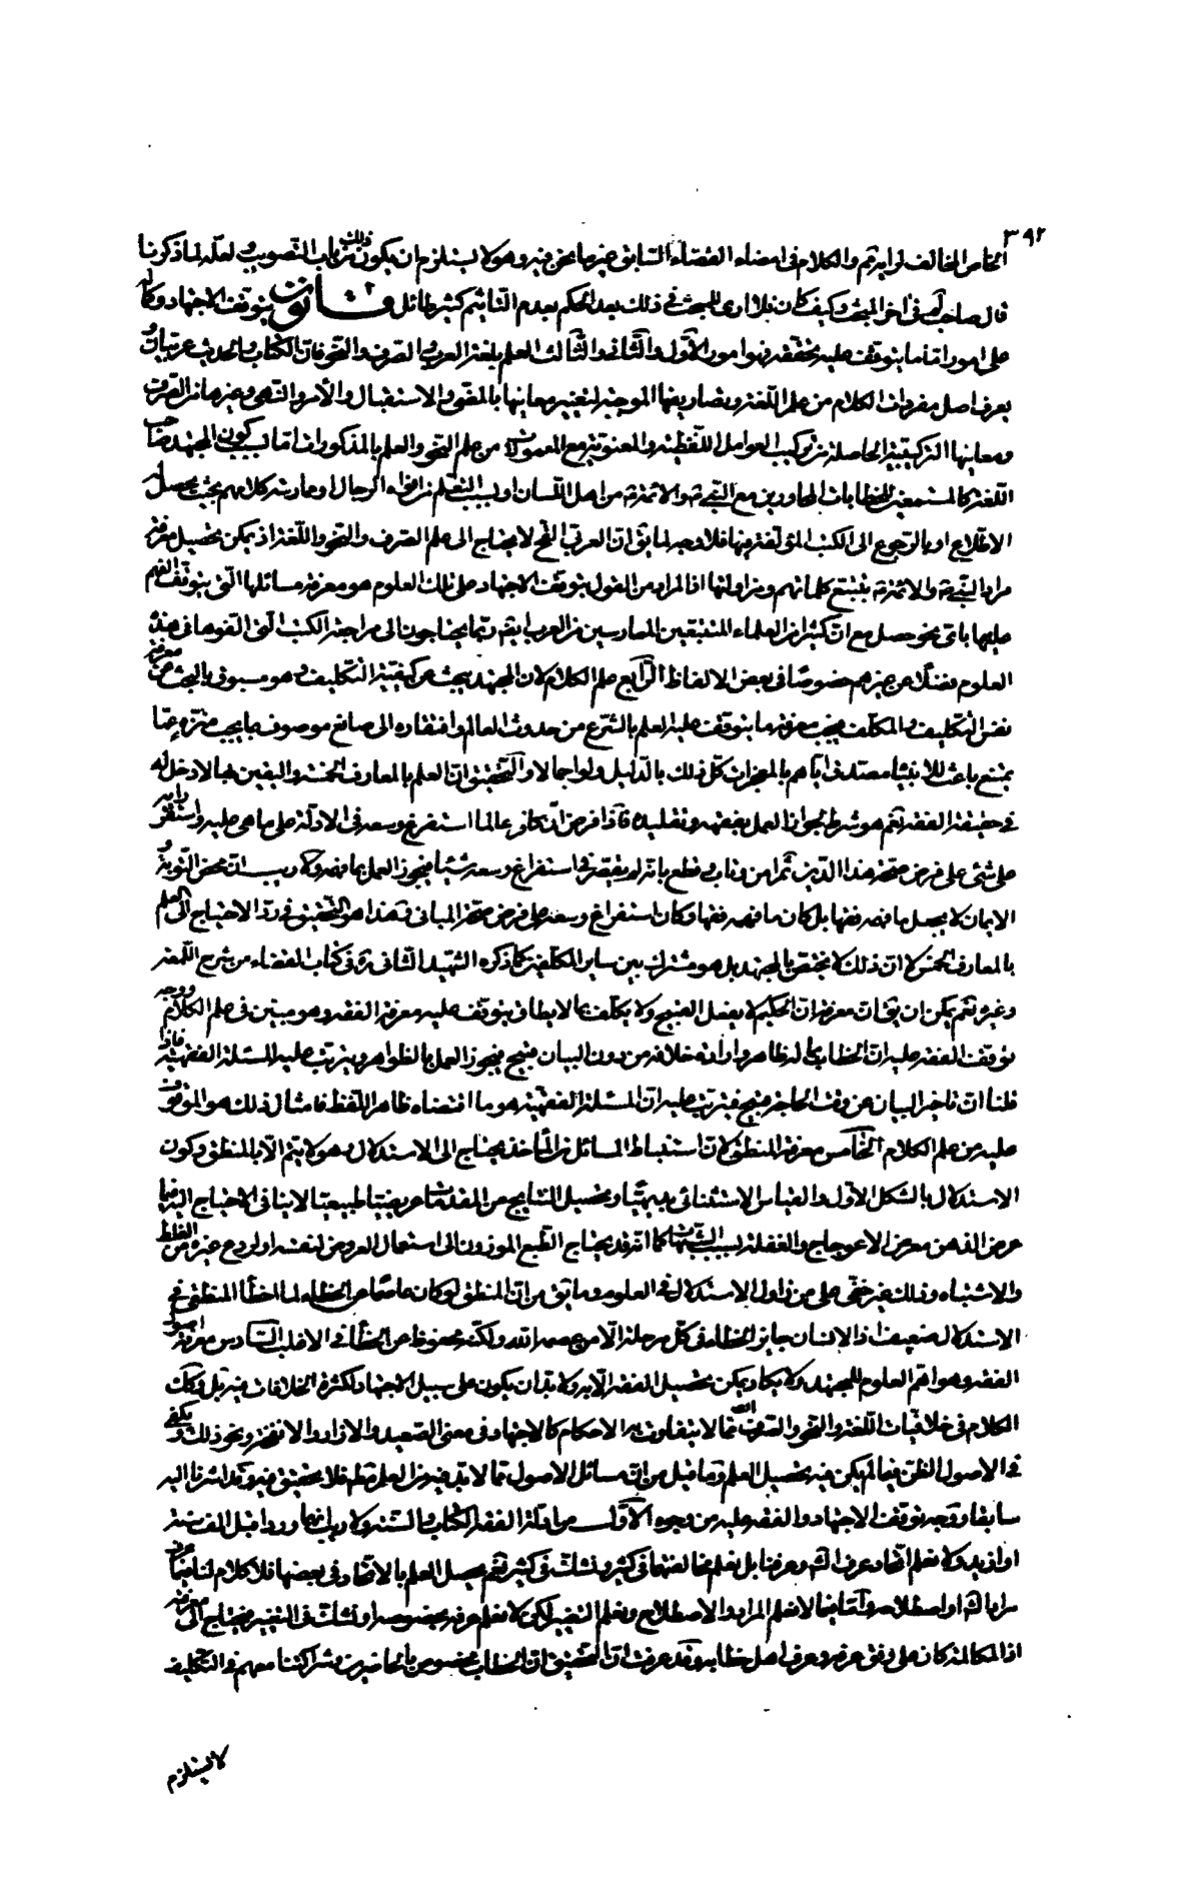 ٣٩٢
الخاص المخالف لرايه ثم والكلام فى امضاء القضاء السابق غير ما نحن فيه وهو لا يستلزم ان يكون ذلك من باب التصويب ولعله لما ذكرنا
قال صاحب لم فى اخر المبحث وكيف كان فلا ارى للبحث فى ذلك بعد الحكم بعدم التاثيم كثير طائل قانون يتوقف الاجتهاد وكماله
على امور اما ما يتوقف عليه تحققه فهو امور الاول والثانى والثالث العلم بلغة العرب والصرف والنحو فان الكتاب والحديث عربيان و
يعرف اصل مفردات الكلام من علم اللغة وتصاريفها الموجبة لتغيير معانيها بالمضى والاستقبال والامر والنهى وغيرها من الصرف
ومعانيها التركيبية الحاصلة من تركيب العوامل اللفظية والمعنوية مع المعمولات من علم النحو والعلم بالمذكورات اما بسبب كون المجتهد صاحب
اللغة كالمستمعين للخطابات المحاورين مع النبى ص والائمة ع من اهل اللسان او بسبب التعلم من افواه الرجال او ممارسة كلامهم بحيث يحصل له
الاطلاع او بالرجوع الى الكتب المؤلفة فيها فلا وجه لما يق ان العربى القح لا يحتاج الى علم الصرف والنحو واللغة اذ يمكن تحصيل معرفة
مراد النبى ص والائمة ع بتتبع كلماتهم ومزاولتها اذ المراد من القول بتوقف الاجتهاد على تلك العلوم هو معرفة مسائلها التى يتوقف الفهم
عليها باى نحو حصل مع ان كثيرا من العلماء المتتبعين الممارسين من العرب ايضا ربما يحتاجون الى مراجعة الكتب التى الفوها فى هذه
العلوم فضلا عن غيرهم خصوصا فى بعض الالفاظ الرابع علم الكلام لان المجتهد يبحث عن كيفية التكليف وهو مسبوق بالبحث عن معرفة
نفس التكليف والمكلف فيجب معرفة ما يتوقف عليه العلم بالشرع من حدوث العالم وافتقاره الى صانع موصوف بما يجب منزه عما
يمتنع باعث للانبياء مصدق اياهم بالمعجزات كل ذلك بالدليل ولو اجمالا والتحقيق ان العلم بالمعارف الخمسة واليقين بها لا دخل له
فى حقيقة الفقه نعم هو شرط لجواز العمل بفقهه وتقليده فاذا فرض ان كافرا عالما استفرغ وسعه فى الادلة على ما هى عليه واستقر رايه
على شئ على فرض صحة هذا الدين ثم امن وتاب وقطع بانه لم يقصر فى استفراغ وسعه شيئا فيجوز العمل بما فهمه ولا ريب ان محض التوبة و
الايمان لا يجعل ما فهمه فقها بل كان ما فهمه فقها وكان استفراغ وسعه على فرض صحة المبانى فهذا هو التحقيق فى رد الاحتياج الى العلم
بالمعارف الخمس لا ان ذلك لا يختص بالمجتهد بل هو مشترك بين ساير المكلفين كما ذكره الشهيد الثانى ره فى كتاب القضاء من شرح اللمعة
وغيره نعم يمكن ان يق ان معرفة ان الحكيم لا يفعل القبيح ولا يكلف بما لا يطاق يتوقف عليه معرفة الفقه وهو مبين فى علم الكلام ووجه
توقف الفقه عليه ان الخطاب بما له ظاهر وارادة خلافه من دون البيان قبيح فيجوز العمل بالظواهر ويترتب عليه المسئلة الفقهية فاذا
قلنا ان تاخير البيان عن وقت الحاجة قبيح فيترتب عليه ان المسئلة الفقهية هو ما اقتضاه ظاهر اللفظ فامثال ذلك هو الموقوف
عليه من علم الكلام الخامس معرفة المنطق لان استنباط المسائل من المأخذ يحتاج الى الاستدلال وهو لا يتم الا بالمنطق وكون
الاستدلال بالشكل الاول والقياس الاستثنائى بديهيا وتحصيل النتايج من المقدمات غريزيا طبيعيا لا ينافى الاحتياج اليه فيما
عرض الذهن معرض الاعوجاج والغفلة بسبب الشبهات كما انه قد يحتاج الطبع الموزون الى استعمال العروض لنفسه او لردع غيره من الغلط
والاشتباه وذلك غير خفى على من زاول الاستدلال فى العلوم وما يق من ان المنطق لو كان عاصما عن الخطاء لما اخطأ المنطقى فى
الاستدلال ضعيف اذ الانسان جايز الخطاء فى كل مرحلة الا من عصمه الله ولكنه محفوظ عن الخطأ فى الاغلب السادس معرفة اصول
الفقه وهو اهم العلوم للمجتهد ولا يكاد يمكن تحصيل الفقه الا به ولا بد ان يكون على سبيل الاجتهاد لكثرة الخلافات فيه بل وكك
الكلام فى خلافيات اللغة والنحو والصرف مما لا يتفاوت به الاحكام كالاجتهاد فى معنى الصعيد والازار والانفحة ونحو ذلك ويكفى
فى الاصول الظن فيما لم يكن فيه تحصيل العلم وما قيل من ان مسائل الاصول مما لا بد فيه من العلم قطعا فلا تحقيق فيه وقد اشرنا اليه
سابقا ووجه توقف الاجتهاد والفقه عليه من وجوه الاول من ادلة الفقه الكتاب والسنة ولا ريب انهما وردا قبل الف سنة
او ازيد ولا نعلم اتحاد عرف الش وعرفنا بل نعلم مخالفتهما فى كثير ونشك فى كثير نعم يحصل العلم بالاتحاد فى بعضها فلا كلام لنا فيما عرف
مراد الش او اصطلاحه واما فيما لا نعلم المراد والاصطلاح ونعلم التغيير لكن لا نعلم عرفه بخصوصه او نشك فى التغيير فيحتاج الى معرفة
اذ المكالمة كان على وفق عرفه وعرف اهل خطابه وقد عرفت ان التحقيق ان الخطاب مخصوص بالحاضرين ومشاركتنا معهم فى التكليف
لا يستلزم